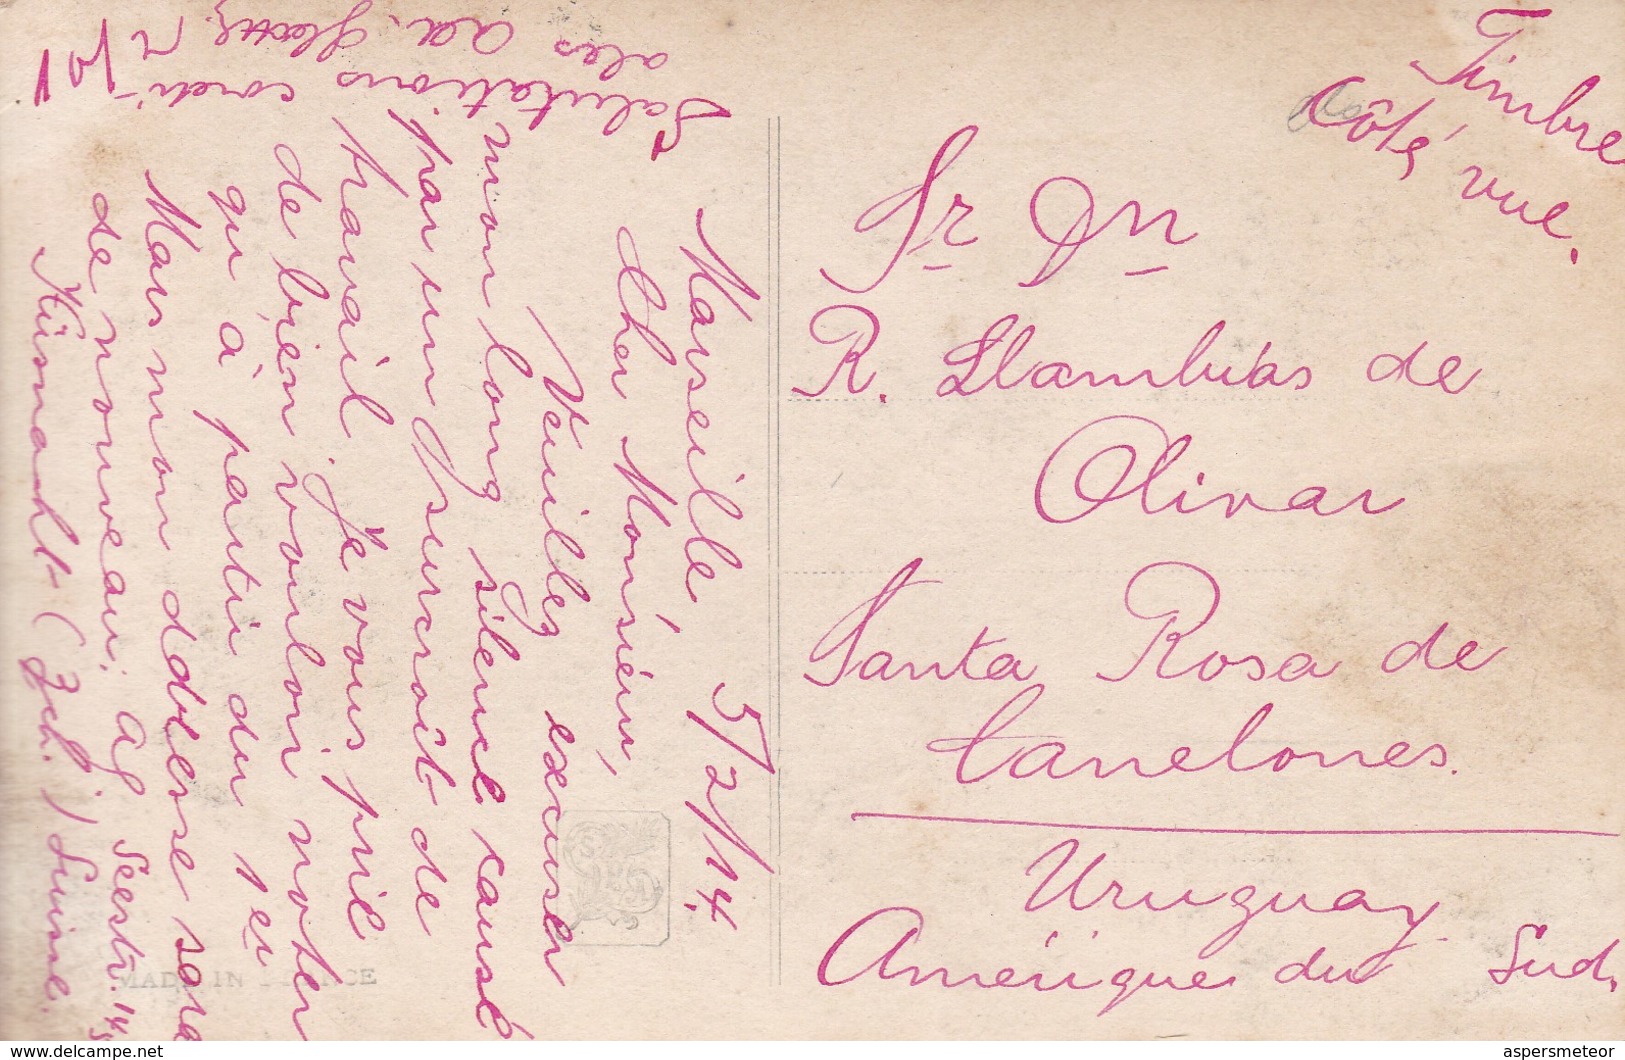 Timbre
Côté vue.
Sr Dn
R. Llambias de
Olivar
Santa Rosa de
Canelones.
Uruguay
Amérique du Sud.
Marseille 5/2/14.
Cher Monsieur,
Veuillez excuser
mon long silence causé
par un surcroît de
travail. Je vous prie
de bien vouloir noter
qu'à partir du 1er
Mars mon adresse sera
de nouveau: Seestr. 14
Küsnacht (Zch.) Suisse.
Salutations cordi-
ales
MADE IN FRANCE
aspersmeteor
www.delcampe.net